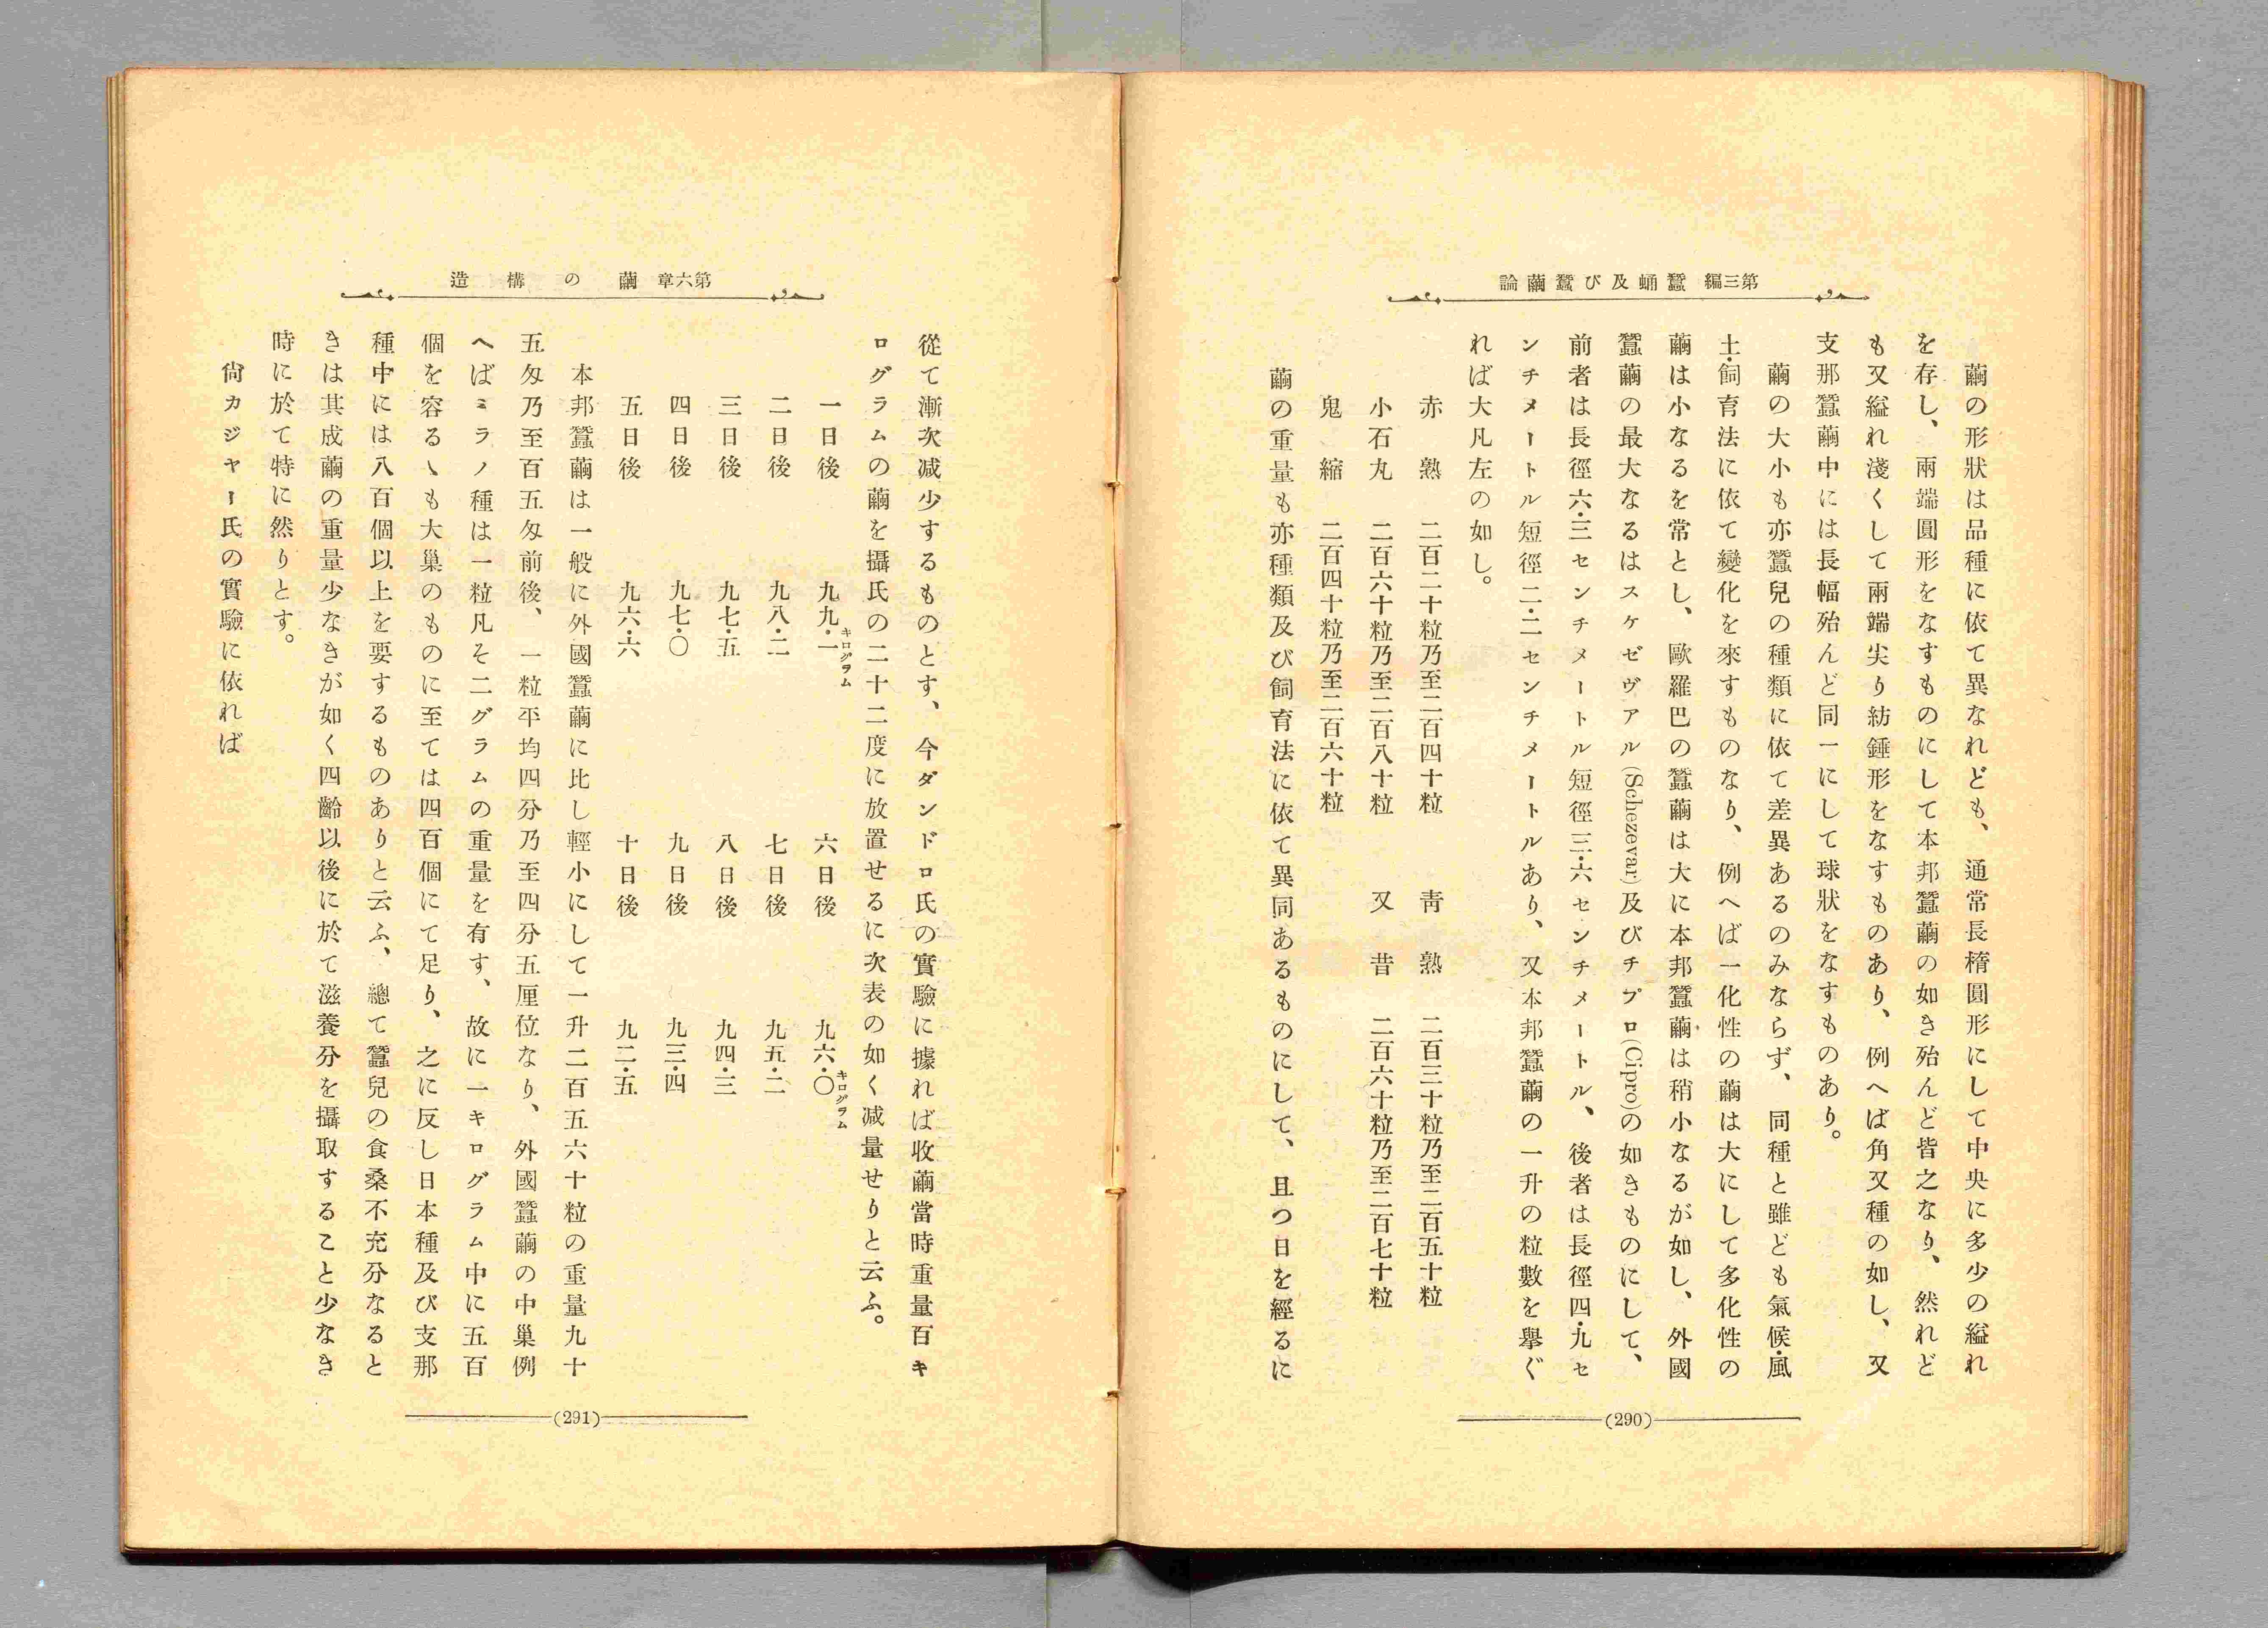 第三編 蠶蛹及び蠶繭論
繭の形狀は品種に依て異なれども、通常長楕圓形にして中央に多少の縊れ
を存し、兩端圓形をなすものにして本邦蠶繭の如き殆んど皆之なり、然れど
も又縊れ淺くして兩端尖り紡錘形をなすものあり、例へば角又種の如し、又
支那蠶繭中には長幅殆んど同一にして球狀をなすものあり。
繭の大小も亦蠶兒の種類に依て差異あるのみならず、同種と雖ども氣候・風
土・飼育法に依て變化を來すものなり、例へば一化性の繭は大にして多化性の
繭は小なるを常とし、歐羅巴の蠶繭は大に本邦蠶繭は稍小なるが如し、外國
蠶繭の最大なるはスケゼヴアル(Schezevar)及びチプロ(Cipro)の如きものにして、
前者は長徑六・三センチメートル短徑三・六センチメートル、後者は長徑四・九セ
ンチメートル短徑二・二センチメートルあり、又本邦蠶繭の一升の粒數を擧ぐ
れば大凡左の如し。
赤熟 二百二十粒乃至二百四十粒 靑熟 二百三十粒乃至二百五十粒
小石丸 二百六十粒乃至二百八十粒 又昔 二百六十粒乃至二百七十粒
鬼縮 二百四十粒乃至二百六十粒
繭の重量も亦種類及び飼育法に依て異同あるものにして、且つ日を經るに
(290)
第六章 繭の構造
從て漸次减少するものとす、今ダンドロ氏の實驗に據れば收繭當時重量百キ
ログラムの繭を攝氏の二十二度に放置せるに次表の如く减量せりと云ふ。
一日後 九九・一キログラム 六日後 九六・〇キログラム
二日後 九八・二 七日後 九五・二
三日後 九七・五 八日後 九四・三
四日後 九七・〇 九日後 九三・四
五日後 九六・六 十日後 九二・五
本邦蠶繭は一般に外國蠶繭に比し輕小にして一升二百五六十粒の重量九十
五匁乃至百五匁前後、一粒平均四分乃至四分五厘位なり、外國蠶繭の中巢例
へばミラノ種は一粒凡そ二グラムの重量を有す、故に一キログラム中に五百
個を容るゝも大巢のものに至ては四百個にて足り、之に反し日本種及び支那
種中には八百個以上を要するものありと云ふ、總て蠶兒の食桑不充分なると
きは其成繭の重量少なきが如く四齡以後に於て滋養分を攝取すること少なき
時に於て特に然りとす。
尙カジヤー氏の實驗に依れば
(291)